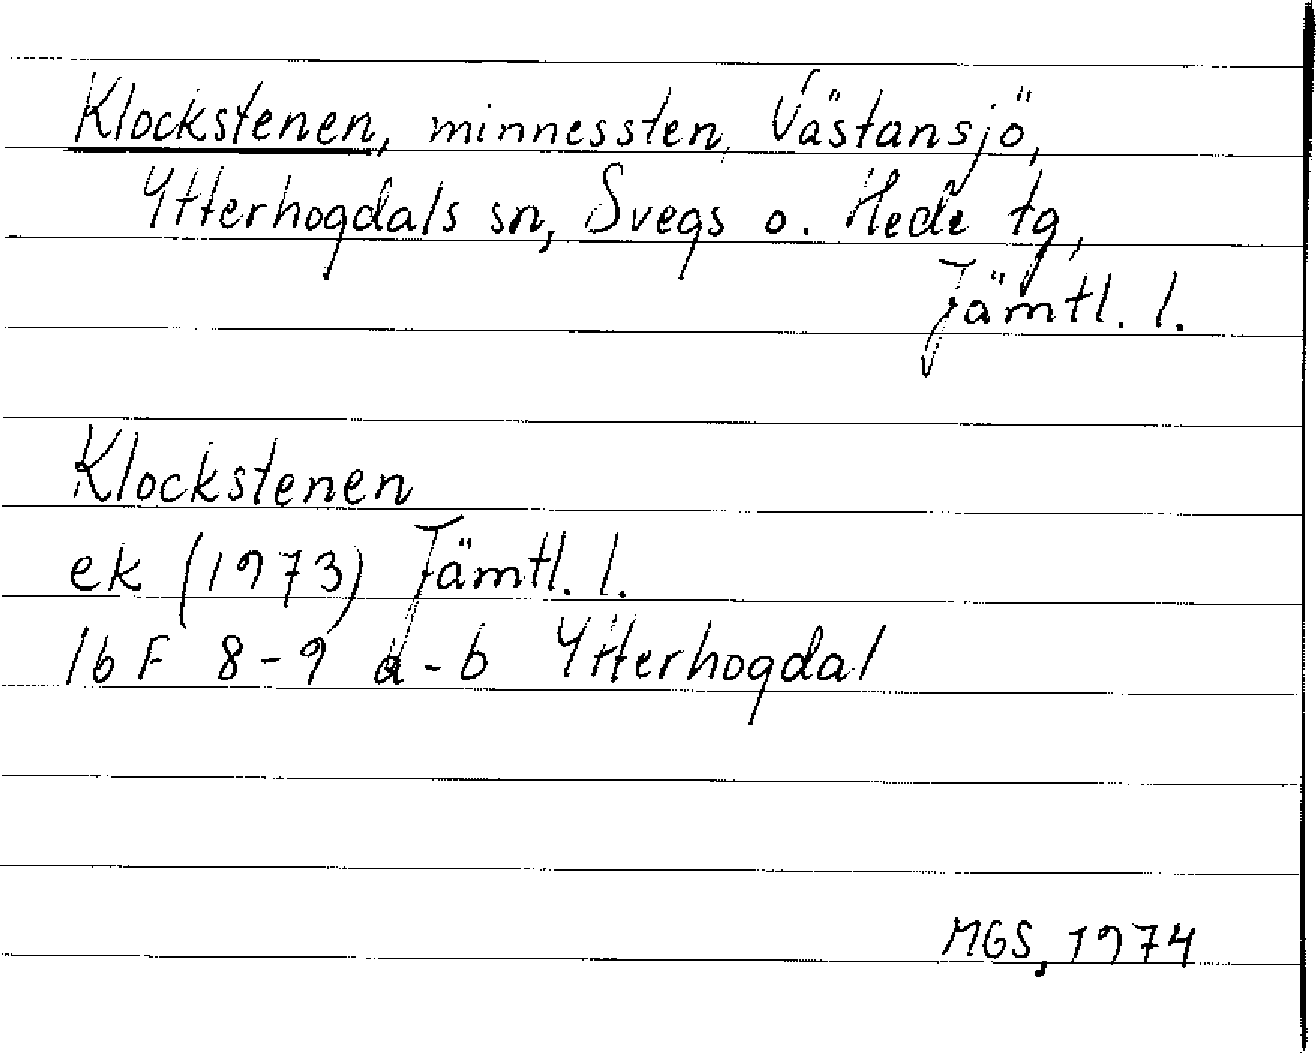 Klockstenen, minnessten, Västansjö,
Ytterhogdals sn, Svegs o. Hede tg,
Jämtl. l.
Klockstenen
ek (1973) Jämtl. l.
16 F 8-9 a-b Ytterhogdal
MGS, 1974